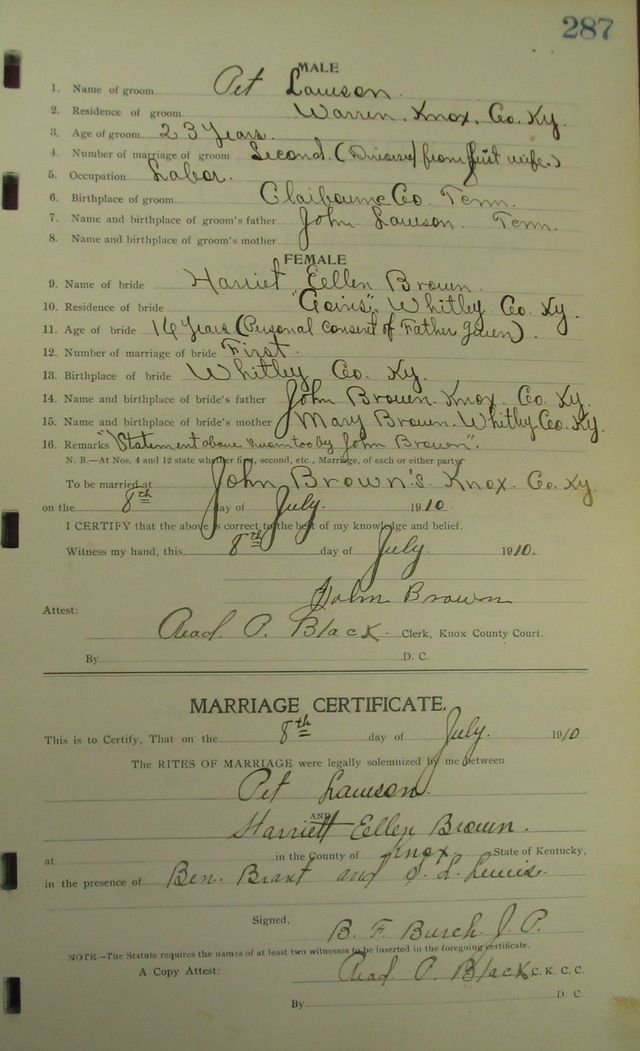 287
MALE
1. Name of groom Pet Lawson.
2. Residence of groom Warren, Knox, Co. Ky.
3. Age of groom 23 Years.
4. Number of marriage of groom Second. (Divorced from first wife.)
5. Occupation Labor.
6. Birthplace of groom Claibourne Co. Tenn.
7. Name and birthplace of groom's father John Lawson. Tenn.
8. Name and birthplace of groom's mother
FEMALE
9. Name of bride Harriet Eellen Brown.
10. Residence of bride "Goins", Whitley Co. Ky.
11. Age of bride Years (Personal Consent of Father given).
12. Number of marriage of bride First.
13. Birthplace of bride Whitley Co. Ky.
14. Name and birthplace of bride's father John Brown. Knox. Co. Ky.
15. Name and birthplace of bride's mother Mary Brown. Whitley Co. Ky.
16. Remarks "Statement above sworn to by John Brown".
N. B.—At Nos. 4 and 12 state whether first, second, etc., Marriage, of each or either party.
To be married at John Brown's Knox. Co. Ky.
on the 8th day of July. 1910
I CERTIFY that the above is correct to the best of my knowledge and belief.
Witness my hand, this 8th day of July. 1910.
John Brown
Attest:
Read P. Black Clerk, Knox County Court.
By D. C.
MARRIAGE CERTIFICATE.
This is to Certify, That on the 8th day of July. 1910
The RITES OF MARRIAGE were legally solemnized by me between
Pet Lawson.
AND
Harriett Eellen Brown.
at in the County of Knox State of Kentucky,
in the presence of Ben. Brant and S. L. Lewis.
Signed, B. F. Burch. J. P.
NOTE—The Statute requires the names of at least two witnesses to be inserted in the foregoing certificate.
A Copy Attest: Read P. Black C. K. C. C.
By D. C.